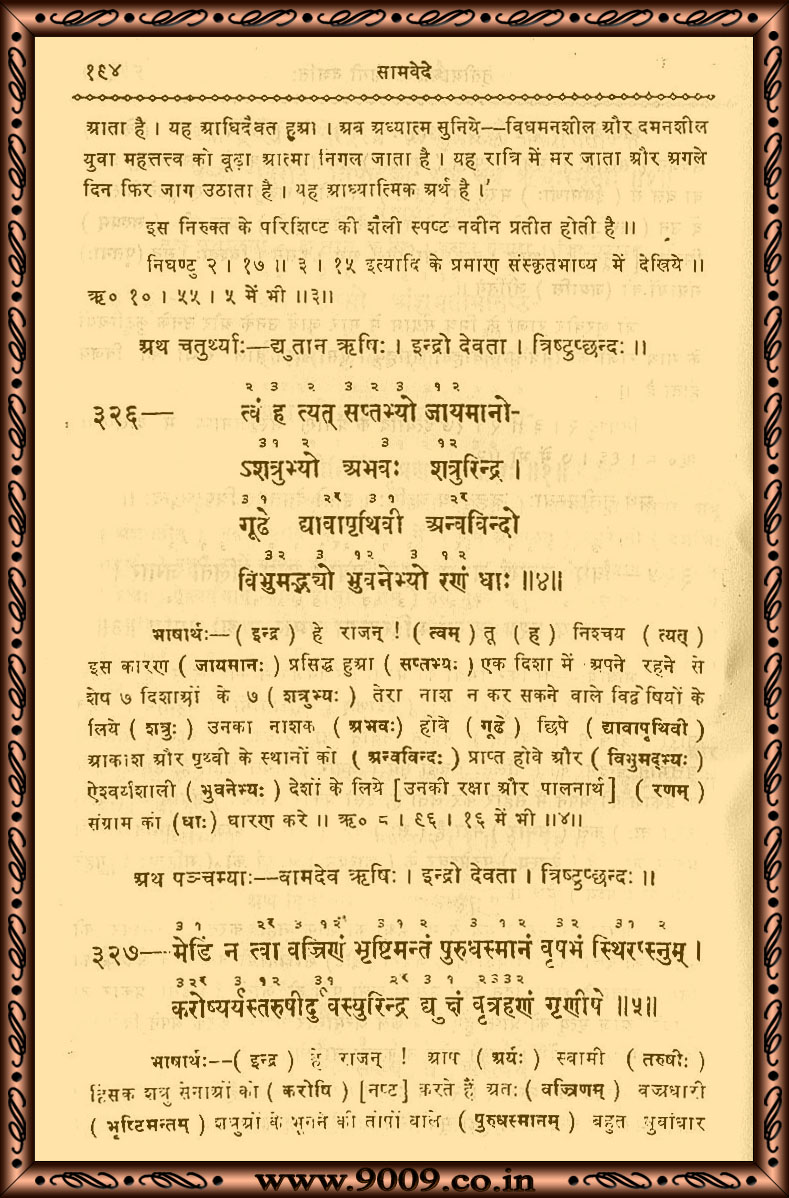 १९४ सामवेदे
आता है । यह आधिदैवत हुआ । अब अध्यात्म सुनिये--विधमनशील और दमनशील
युवा महत्तत्त्व को बूढ़ा आत्मा निगल जाता है । यह रात्रि में मर जाता और अगले
दिन फिर जाग उठाता है । यह आध्यात्मिक अर्थ है ।'
इस निरुक्त के परिशिष्ट की शैली स्पष्ट नवीन प्रतीत होती है ॥
निघण्टु २ । १७ ॥ ३ । १५ इत्यादि के प्रमाण संस्कृतभाष्य में देखिये ॥
ऋ० १० । ५५ । ५ में भी ॥३॥
अथ चतुर्थ्याः—द्युतान ऋषिः । इन्द्रो देवता । त्रिष्टुप्छन्दः ॥
२ ३ २ ३ २ ३ १ २
३२६— त्वं ह त्यत् सप्तभ्यो जायमानो-
३१ २ ३ १२
ऽशत्रुभ्यो अभवः शत्रुरिन्द्र ।
३ १ २र ३१ २र
गूढे द्यावापृथिवी अन्वविन्दो
३२ ३ १२ ३ १ २
विभुमद्भ्यो भुवनेभ्यो रणं धाः ॥४॥
भाषार्थः—( इन्द्र ) हे राजन् ! ( त्वम् ) तू ( ह ) निश्चय ( त्यत् )
इस कारण ( जायमानः ) प्रसिद्ध हुआ ( सप्तभ्यः ) एक दिशा में अपने रहने से
शेष ७ दिशाओं के ७ ( शत्रुभ्यः ) तेरा नाश न कर सकने वाले विद्वेषियों के
लिये ( शत्रुः ) उनका नाशक ( अभवः) होवे ( गूढे ) छिपे ( द्यावापृथिवी )
आकाश और पृथ्वी के स्थानों को ( अन्वविन्दः ) प्राप्त होवे और ( विभुमद्भ्यः )
ऐश्वर्यशाली ( भुवनेभ्यः ) देशों के लिये [उनकी रक्षा और पालनार्थ] ( रणम् )
संग्राम को (धाः) धारण करे ॥ ऋ० ८ । ९६ । १६ में भी ॥४॥
अथ पञ्चम्याः—वामदेव ऋषिः । इन्द्रो देवता । त्रिष्टुप्छन्दः ॥
३ १ २र ३ १२ ३ १ २ ३ १ २ ३२ ३१ २
३२७—मेडिं न त्वा वज्रिणं भृष्टिमन्तं पुरुधस्मानं वृषभं स्थिरप्स्नुम् ।
३२र ३ १२ ३१ २र ३ १ २३३२
करोष्यर्यस्तरुषीर्दुवस्युरिन्द्र द्युक्षं वृत्रहणं गृणीषे ॥५॥
भाषार्थः--( इन्द्र ) हे राजन् ! आप ( अर्यः ) स्वामी ( तरुषीः )
हिंसक शत्रु सेनाओं को ( करोषि ) [नष्ट] करते हैं अतः ( वज्रिणम् ) वज्रधारी
( भृष्टिमन्तम् ) शत्रुओं के भूनने की तोपों वाले ( पुरुधस्मानम् ) बहुत धुवांधार
www.9009.co.in